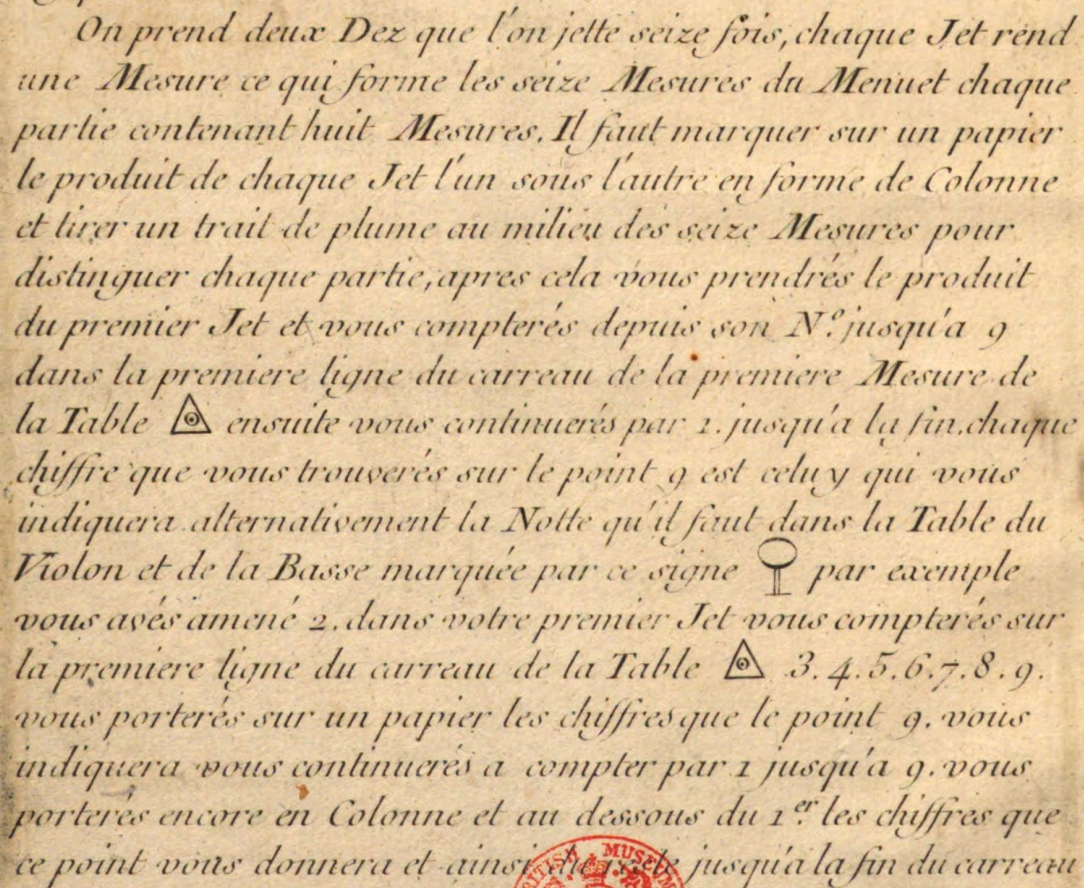 On prend deux Dez que l'on jette seize fois, chaque Jet rend
une Mesure ce qui forme les seize Mesures du Menuet chaque
partie contenant huit Mesures. Il faut marquer sur un papier
le produit de chaque Jet l'un sous l'autre en forme de Colonne
et tirer un trait de plume au milieu des seize Mesures pour
distinguer chaque partie, apres cela vous prendrés le produit
du premier Jet et vous compterés depuis son N.º jusqu'a 9
dans la premiere ligne du carreau de la premiere Mesure de
la Table ensuite vous continuerés par 1. jusqu'a la fin. chaque
chiffre que vous trouverés sur le point 9 est celuy qui vous
indiquera alternativement la Notte qu'il faut dans la Table du
Violon et de la Basse marquée par ce signe par exemple
vous avés amené 2. dans votre premier Jet vous compterés sur
la premiere ligne du carreau de la Table 3. 4. 5. 6. 7. 8. 9.
vous porterés sur un papier les chiffres que le point 9. vous
indiquera vous continuerés a compter par 1 jusqu'a 9. vous
porterés encore en Colonne et au dessous du 1.er les chiffres que
ce point vous donnera et ainsi jusqu'a la fin du carreau
BRITISH MUSEUM